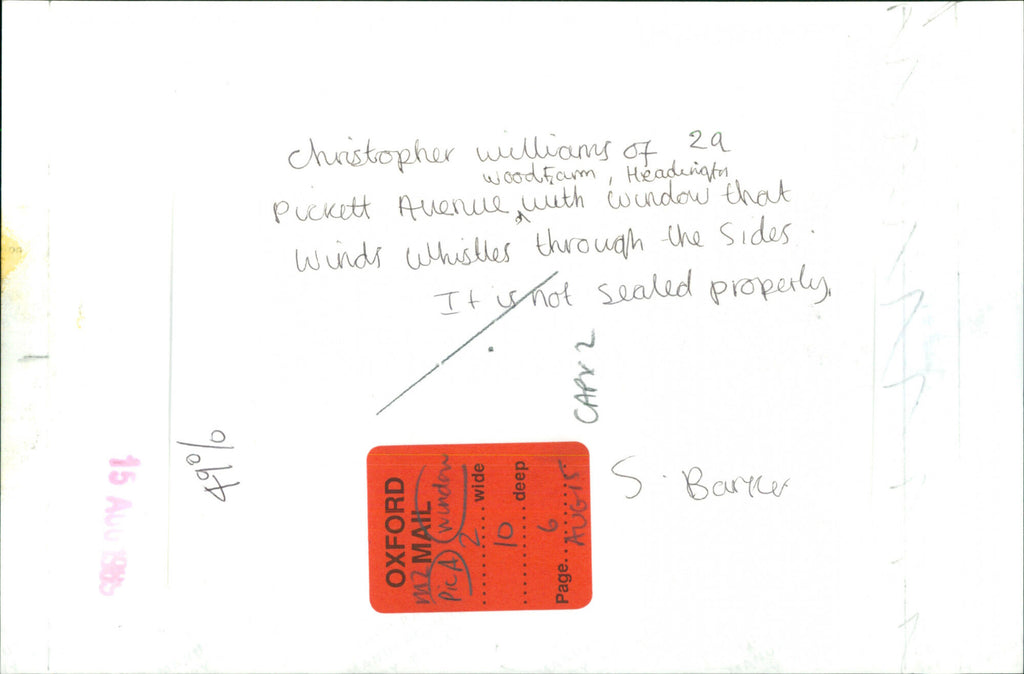 Christopher Williams of 2a
Woodfarm, Headington
Pickett Avenue, with window that
winds whistles through the sides.
It is not sealed properly.
CAPX 2
49%
S. Barker
15 AUG
OXFORD
MAIL
M2
PIC A window
2 wide
10 deep
Page 6
AUG 15